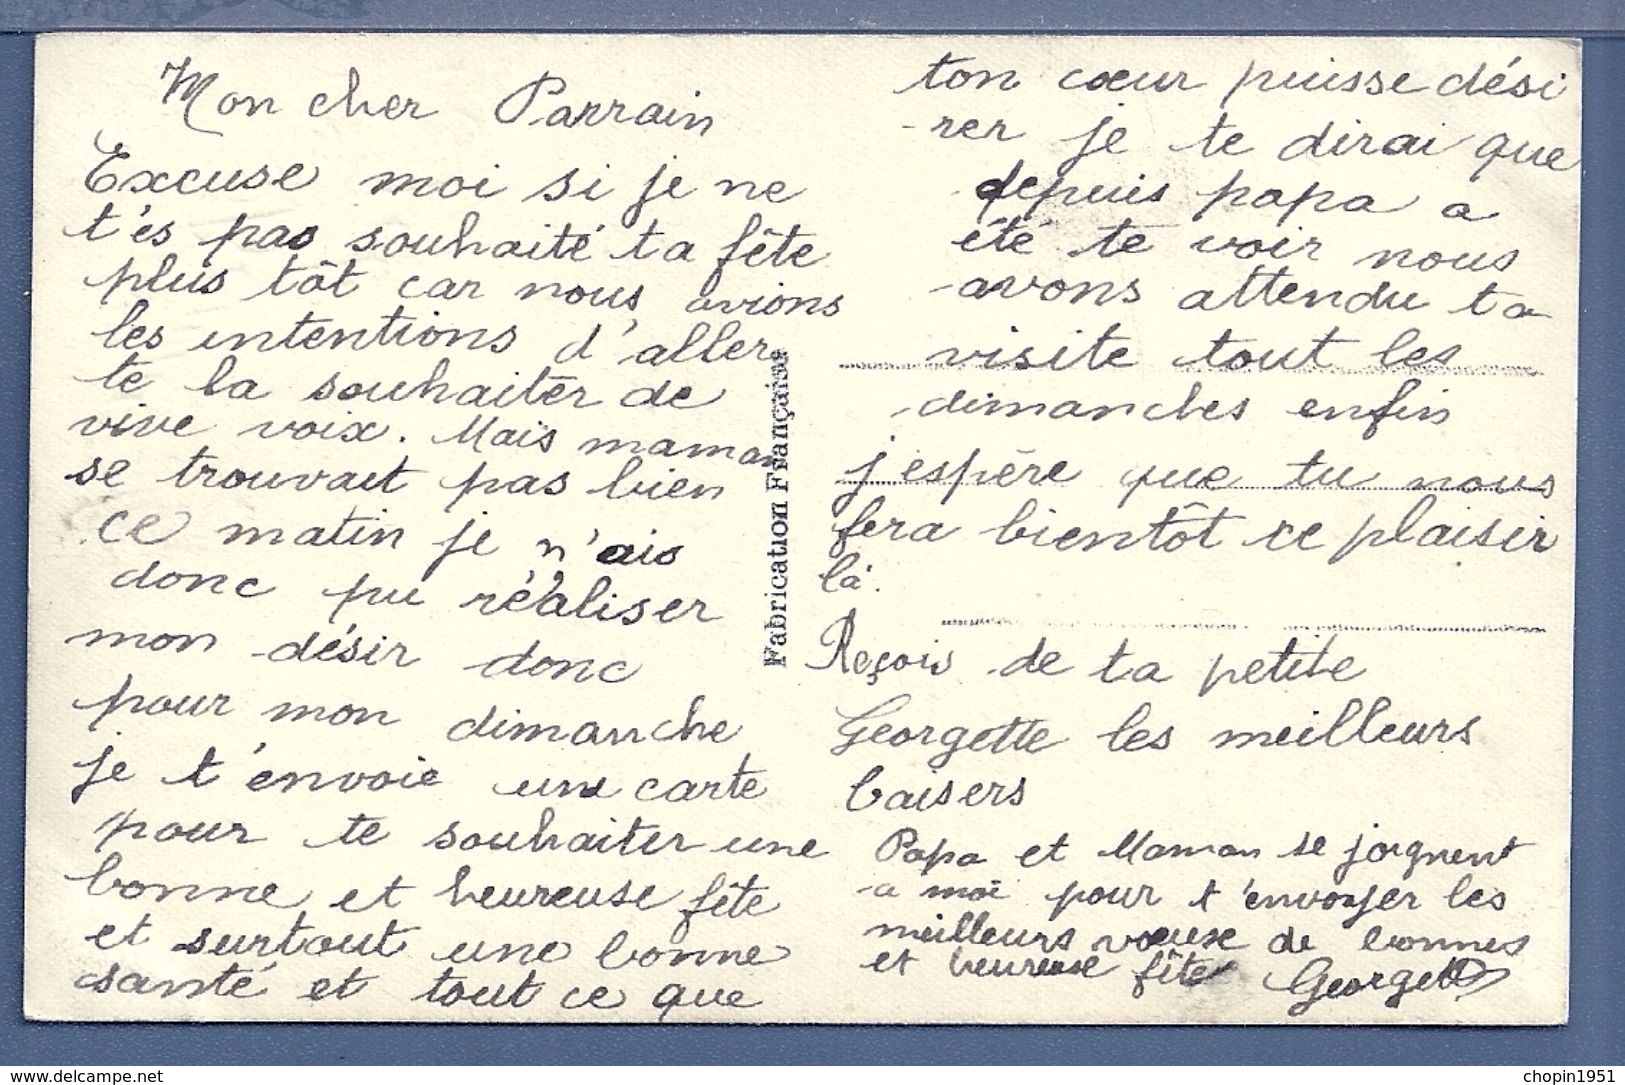 Mon cher Parrain
Excuse moi si je ne
t'és pas souhaité ta fête
plus tôt car nous avions
les intentions d'aller
te la souhaiter de
vive voix. Mais maman
se trouvait pas bien
ce matin je n'ais
donc pu réaliser
mon désir donc
pour mon dimanche
je t'envoie une carte
pour te souhaiter une
bonne et heureuse fête
et surtout une bonne
santé et tout ce que
Fabrication Française
ton cœur puisse dési
-rer je te dirai que
depuis papa a
été te voir nous
avons attendu ta
visite tout les
dimanches enfin
j'espère que tu nous
fera bientôt ce plaisir
là.
Reçois de ta petite
Georgette les meilleurs
baisers
Papa et Maman se joignent
a moi pour t'envoyer les
meilleurs vœux de bonnes
et heureuse fête Georgette
https://www.delcampe.net
chopin1951